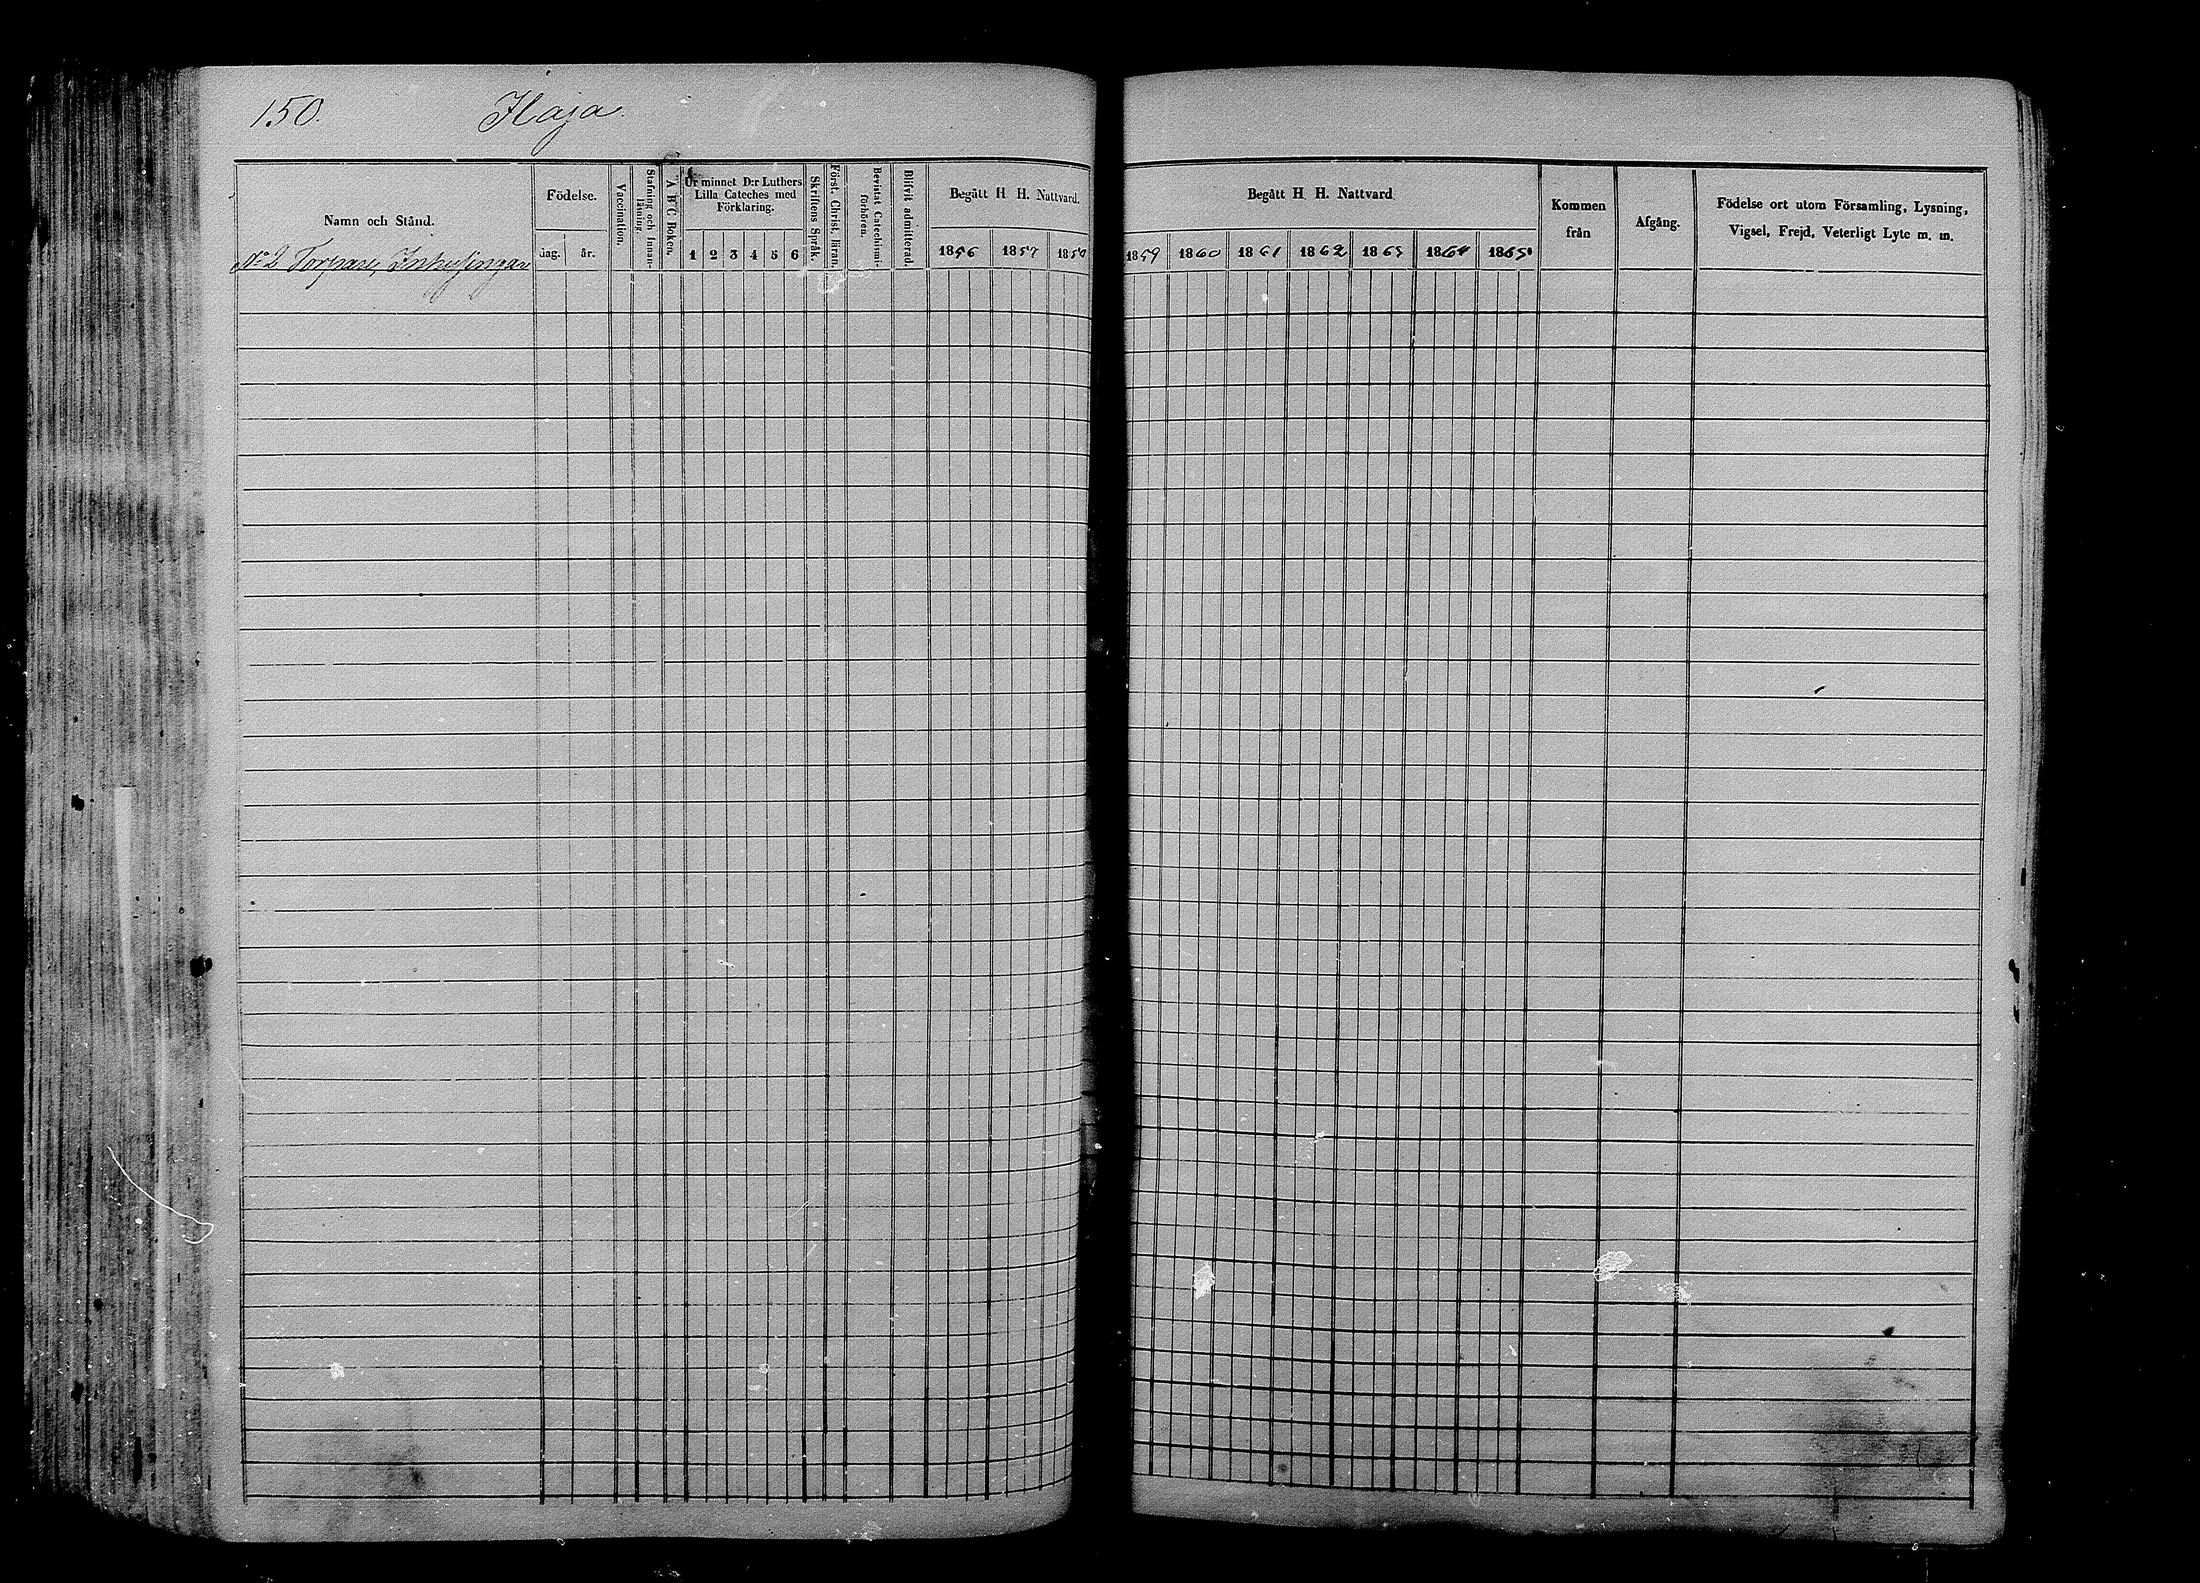 150. Haja.
Namn och Stånd.
No 2 Torpare, Inhysingar
Födelse.
dag. år.
Vaccination.
Stafning och Innan-
läsning.
A B C Boken.
Ur minnet D:r Luthers
Lilla Cateches med
Förklaring.
1 2 3 4 5 6
Skriftens Språk.
Först. Christ. läran.
Bevistat Catechismi-
förhören.
Blifvit admitterad.
Begått H H. Nattvard.
1856 1857 1858
Begått H H. Nattvard
1859 1860 1861 1862 1863 1864 1865
Kommen
från
Afgång.
Födelse ort utom Församling, Lysning,
Vigsel, Frejd, Veterligt Lyte m. m.